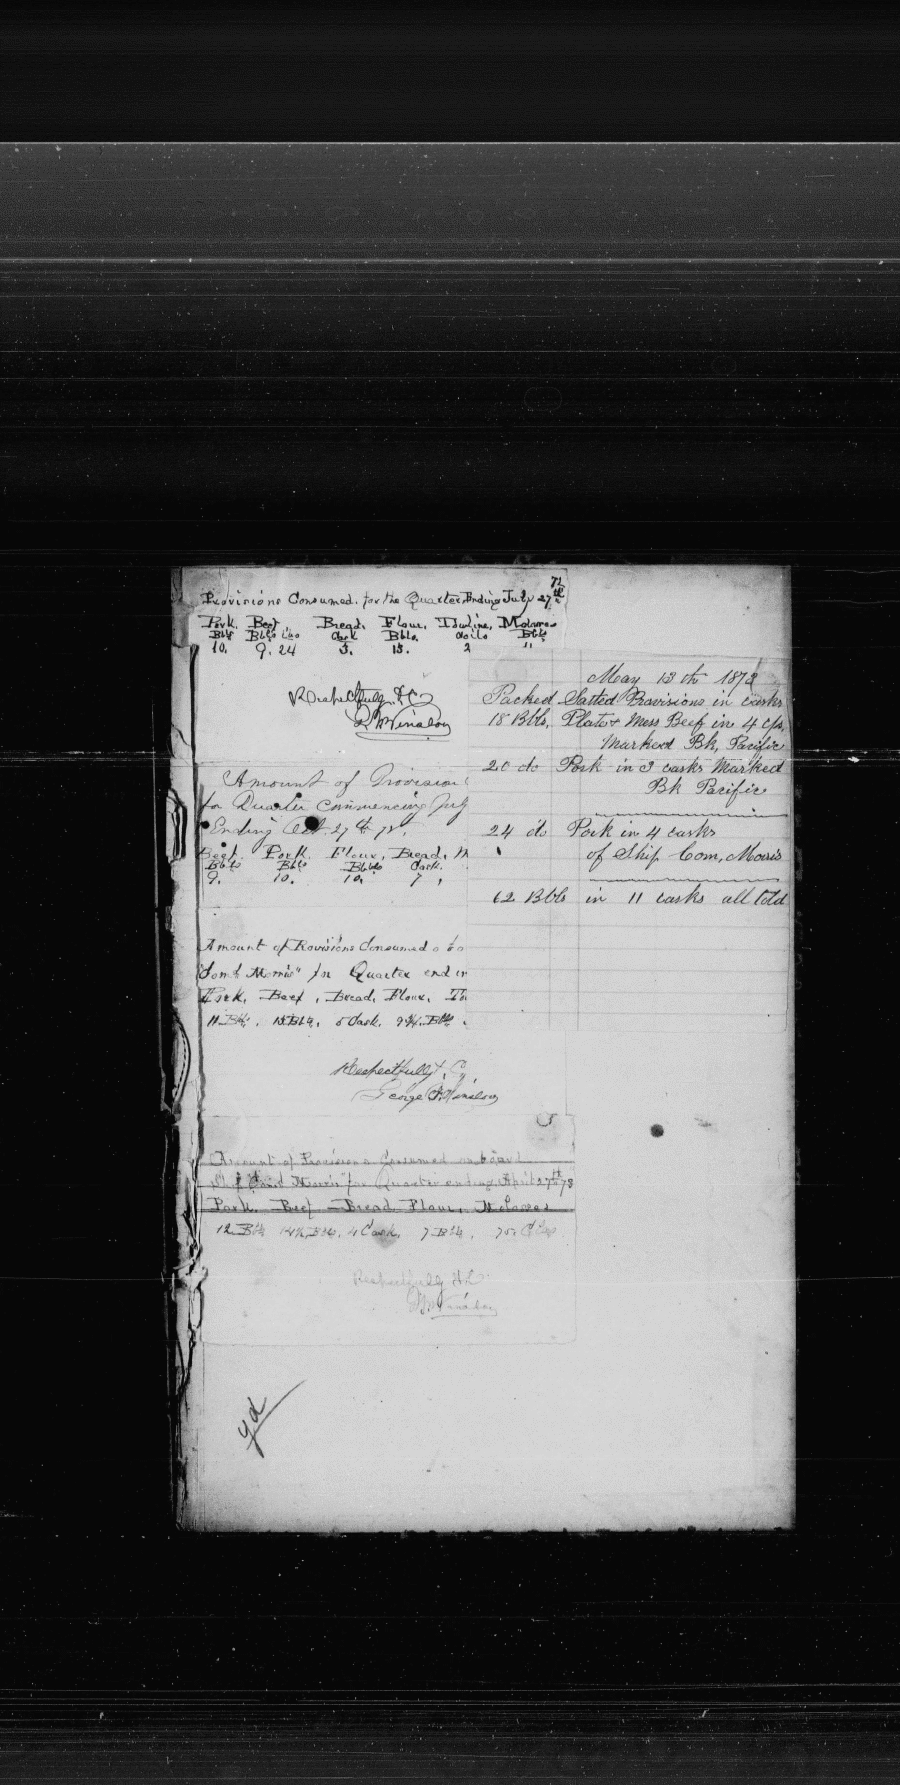 Provisions Consumed. for the Quarter Ending July 27th 72
Pork. Beef Bread. Flour, Molasses
Bbls Bbls Lbs Cask Bbls. Bbls
10. 9. 24 5. 15. 2 11
Respectfully
Winslow
Amount of Provision
for Quarter Commencing July
Ending Oct. 27th 72.
Beef. Pork. Flour, Bread, M
Bbls Bbls Bbls Cask.
9. 10. 10. 7,
Amount of Provisions Consumed
Com. Morris" for Quarter
Pork. Beef, Bread, Flour,
11 Bbls. Bbls, 5 Cask. Bbls
Respectfully
George Winslow
Amount of Provisions Consumed on board
Morris" for Quarter ending April 27th 73
Pork. Beef Bread Flour, Molasses
12 Bbls Bbls. 4 Cask, 7 Bbls,
Respectfully
Winslow
May 13th 1873
Packed Salted Provisions in casks
18 Bbls, Plate & Mess Beef in 4 cks,
Marked Bk, Pacific
20 do Pork in 3 casks Marked
Bk Pacific
24 do Pork in 4 casks
of Ship Com, Morris
62 Bbls in 11 casks all told